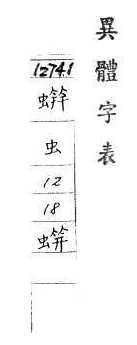 異體字表
12741
虫
12
18